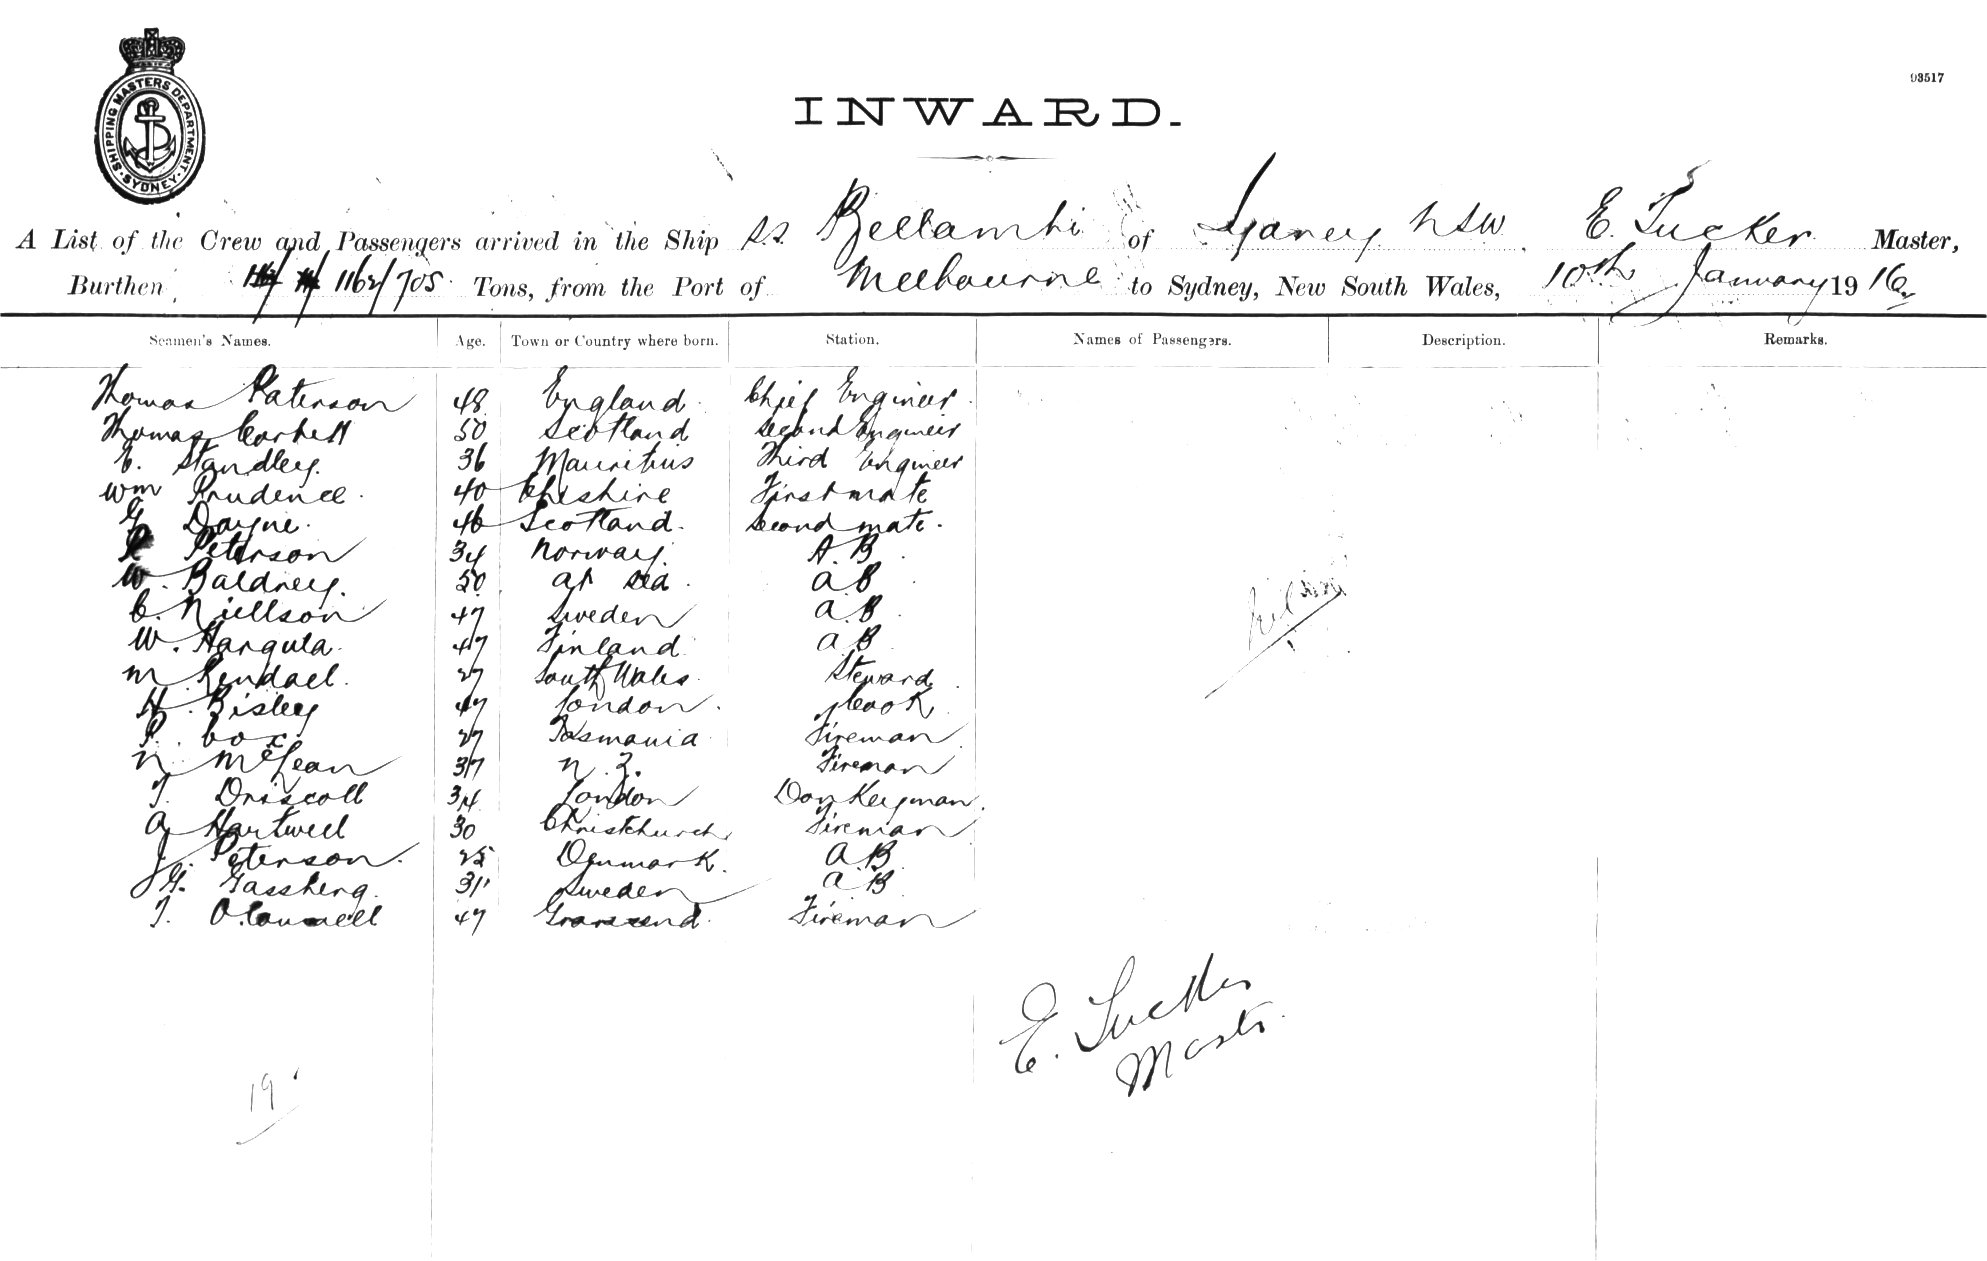 SHIPPING MASTERS DEPARTMENT. SYDNEY.
93517
INWARD.
A List of the Crew and Passengers arrived in the Ship s.s. Bellambi of Sydney NSW. E. Tucker Master,
Burthen 1162/705 Tons, from the Port of Melbourne to Sydney, New South Wales, 10th January 1916
Seamen's Names. Age. Town or Country where born. Station. Names of Passengers. Description. Remarks.
Thomas Paterson 48 England Chief Engineer
Thomas Corbett 50 Scotland Second Engineer
E. Standley. 36 Mauritius Third Engineer
Wm Prudence 40 Cheshire First mate
G Dayne. 46 Scotland. Second mate.
Peterson 34 Norway A.B
W. Baldrey. 50 at sea a B
C. Niellson 47 Sweden a.B
W. Hargula 47 Finland a B
M Kendall. 27 South Wales Steward
H. Bisley 47 London Cook
P. Cox 27 Tasmania Fireman
N McLean 37 N.Z. Fireman
T. Driscoll 34 London Donkeyman
A Hartwell 30 Christchurch Fireman
J. Peterson. 25 Denmark. A B
G. Gassberg. 31 Sweden a B
T. O'Connell 47 Gravesend Fireman
E. Tucker
Master
19